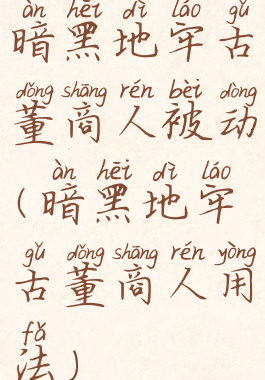 àn hēi dì láo gǔ
暗黑地牢古
dǒng shāng rén bèi dòng
董商人被动
àn hēi dì láo
(暗黑地牢
gǔ dǒng shāng rén yòng
古董商人用
fǎ
法)